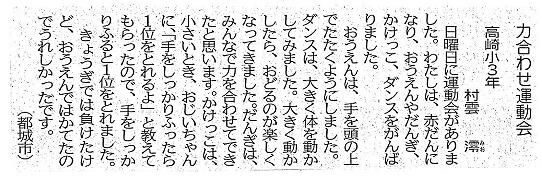 力合わせ運動会
高崎小3年
村雲 澪
みお
日曜日に運動会がありま
した。わたしは、赤だんに
なり、おうえんやだんぎ、
かけっこ、ダンスをがんば
りました。
おうえんは、手を頭の上
でたたくようにしました。
ダンスは、大きく体を動か
してみました。大きく動か
したら、おどるのが楽しく
なってきました。だんぎは、
みんなで力を合わせてでき
たと思います。かけっこは、
小さいとき、おじいちゃん
に、「手をしっかりふったら
1位をとれるよ」と教えて
もらったので、手をしっか
りふると1位をとれました。
きょうぎでは負けたけ
ど、おうえんではかてたの
でうれしかったです。
(都城市)